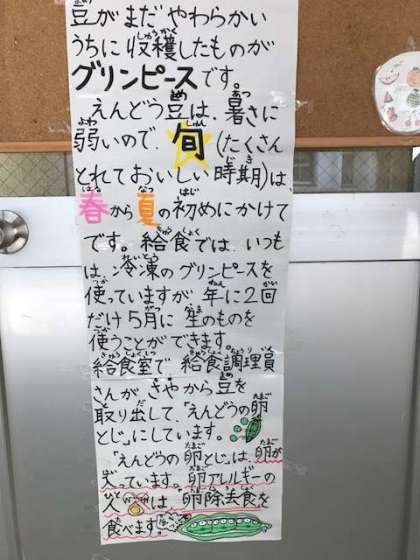 豆がまだ やわらかい
うちに 収穫したものが
グリンピースです。
えんどう豆は、暑さに
弱いので、旬(たくさん
とれておいしい時期)は
春から夏の初めにかけて
です。給食では いつも
は、冷凍のグリンピースを
使っていますが 年に2回
だけ 5月に 生のものを
使うことができます。
給食室で 給食調理員
さんが さやから豆を
取り出して、「えんどうの卵
とじ」にしています。
「えんどうの卵とじ」は、卵が
入っています。卵アレルギーの
人は 卵除去食を
食べます。